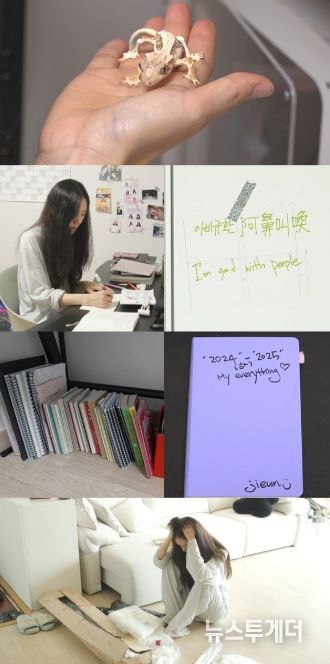 아비규환 阿鼻叫喚
I'm good with people.
"2024" "2025"
My everything♡
jieun
뉴스투게더